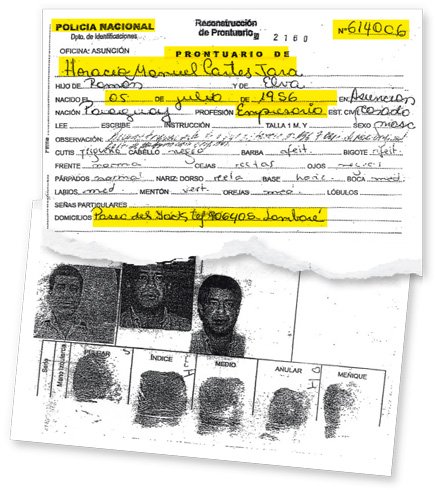 POLICIA NACIONAL
Dpto. de Identificaciones
Reconstrucción
de Prontuario
2160
Nº 614006
OFICINA: ASUNCIÓN
PRONTUARIO DE
Horacio Manuel Cartes Jara
HIJO DE Ramón Y DE Elva
NACIDO EL 05 de julio de 1956 EN Asunción
NACIÓN Paraguay PROFESIÓN Empresario EST. CIV. casado
LEE ESCRIBE INSTRUCCIÓN TALLA 1 M. Y SEXO masc
OBSERVACIÓN:
CUTIS trigueño CABELLO negro BARBA afeit. BIGOTE afeit.
FRENTE normal CEJAS rectas OJOS
PÁRPADOS normal NARIZ: DORSO recto BASE horiz. BOCA med.
LABIOS med MENTÓN vert. OREJAS med. LÓBULOS
SEÑAS PARTICULARES
DOMICILIOS Paseo del Yacht, Lambaré
Serie
Mano Izquierda
PULGAR
ÍNDICE
MEDIO
ANULAR
MEÑIQUE